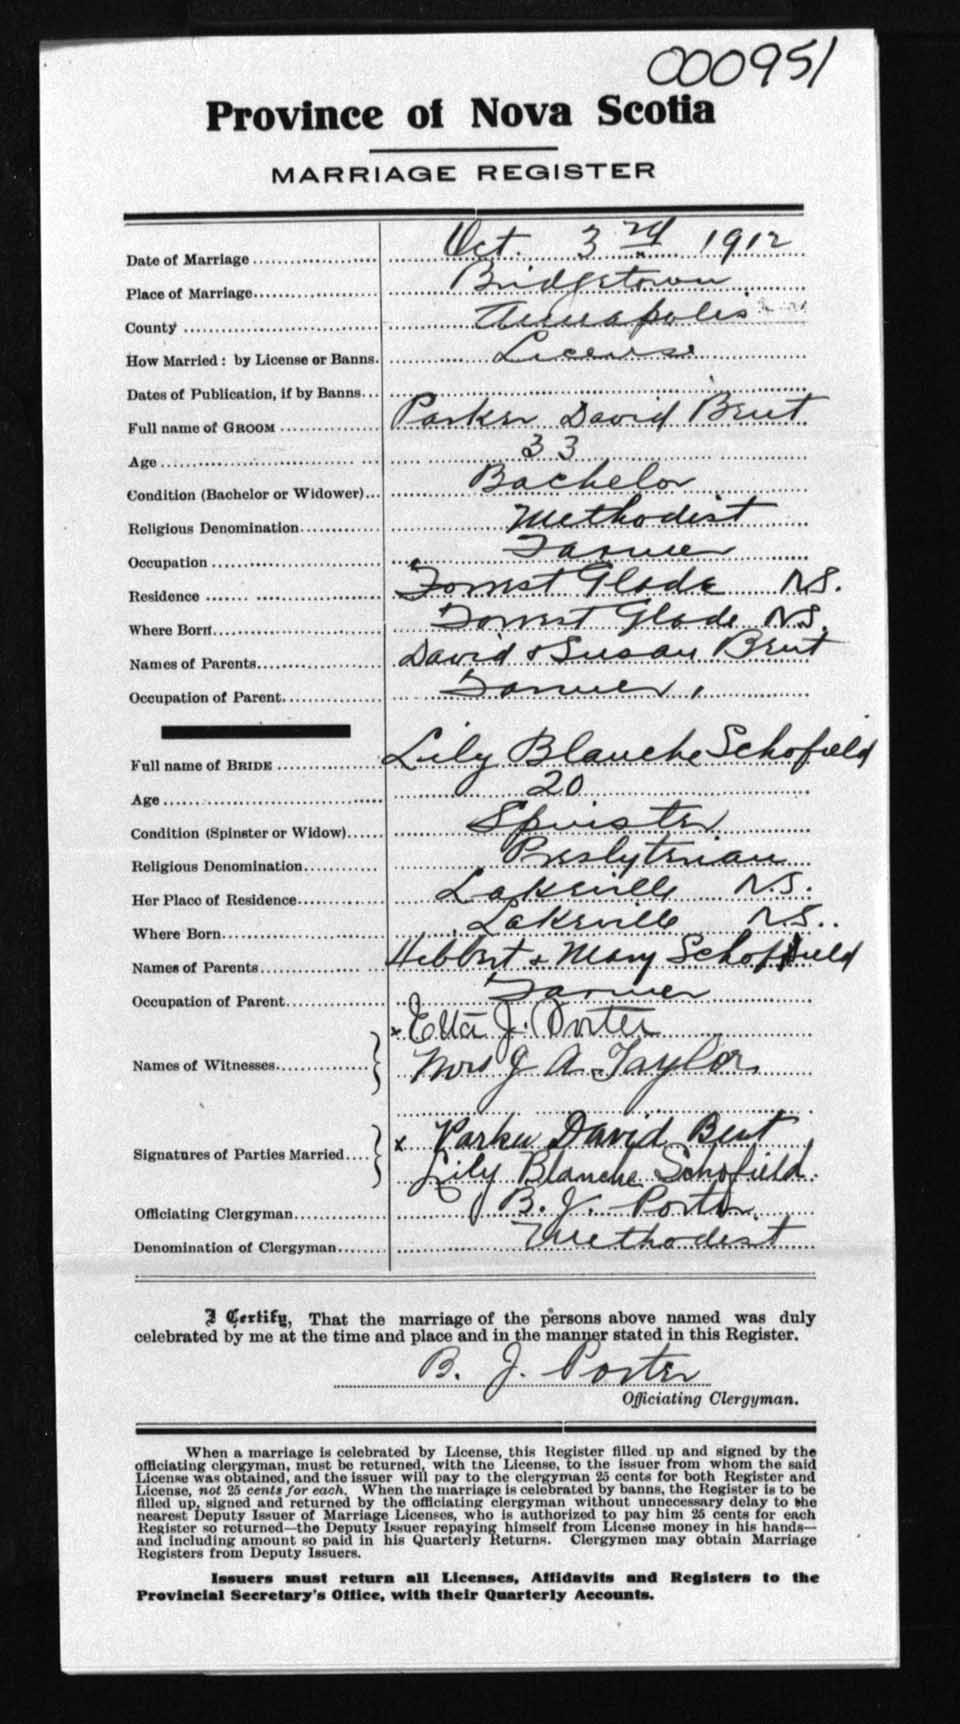 000951
Province of Nova Scotia
MARRIAGE REGISTER
Date of Marriage Oct. 3rd 1912
Place of Marriage Bridgetown
County Annapolis
How Married: by License or Banns. License
Dates of Publication, if by Banns
Full name of GROOM Parker David Bent
Age 33
Condition (Bachelor or Widower) Bachelor
Religious Denomination Methodist
Occupation Farmer
Residence Forrest Glade N.S.
Where Born Forrest Glade N.S.
Names of Parents David & Susan Bent
Occupation of Parent Farmer
Full name of BRIDE Lily Blanche Schofield
Age 20
Condition (Spinster or Widow) Spinster
Religious Denomination Presbyterian
Her Place of Residence Lakeville N.S.
Where Born Lakeville N.S.
Names of Parents Hibbert & Mary Schofield
Occupation of Parent Farmer
x Etta J. Porter
Names of Witnesses Mrs J A Taylor
x Parker David Bent
Signatures of Parties Married Lily Blanche Schofield.
Officiating Clergyman B. J. Porter.
Denomination of Clergyman Methodist
I Certify, That the marriage of the persons above named was duly
celebrated by me at the time and place and in the manner stated in this Register.
B. J. Porter
Officiating Clergyman.
When a marriage is celebrated by License, this Register filled up and signed by the
officiating clergyman, must be returned, with the License, to the issuer from whom the said
License was obtained, and the issuer will pay to the clergyman 25 cents for both Register and
License, not 25 cents for each. When the marriage is celebrated by banns, the Register is to be
filled up, signed and returned by the officiating clergyman without unnecessary delay to the
nearest Deputy Issuer of Marriage Licenses, who is authorized to pay him 25 cents for each
Register so returned—the Deputy Issuer repaying himself from License money in his hands—
and including amount so paid in his Quarterly Returns. Clergymen may obtain Marriage
Registers from Deputy Issuers.
Issuers must return all Licenses, Affidavits and Registers to the
Provincial Secretary's Office, with their Quarterly Accounts.